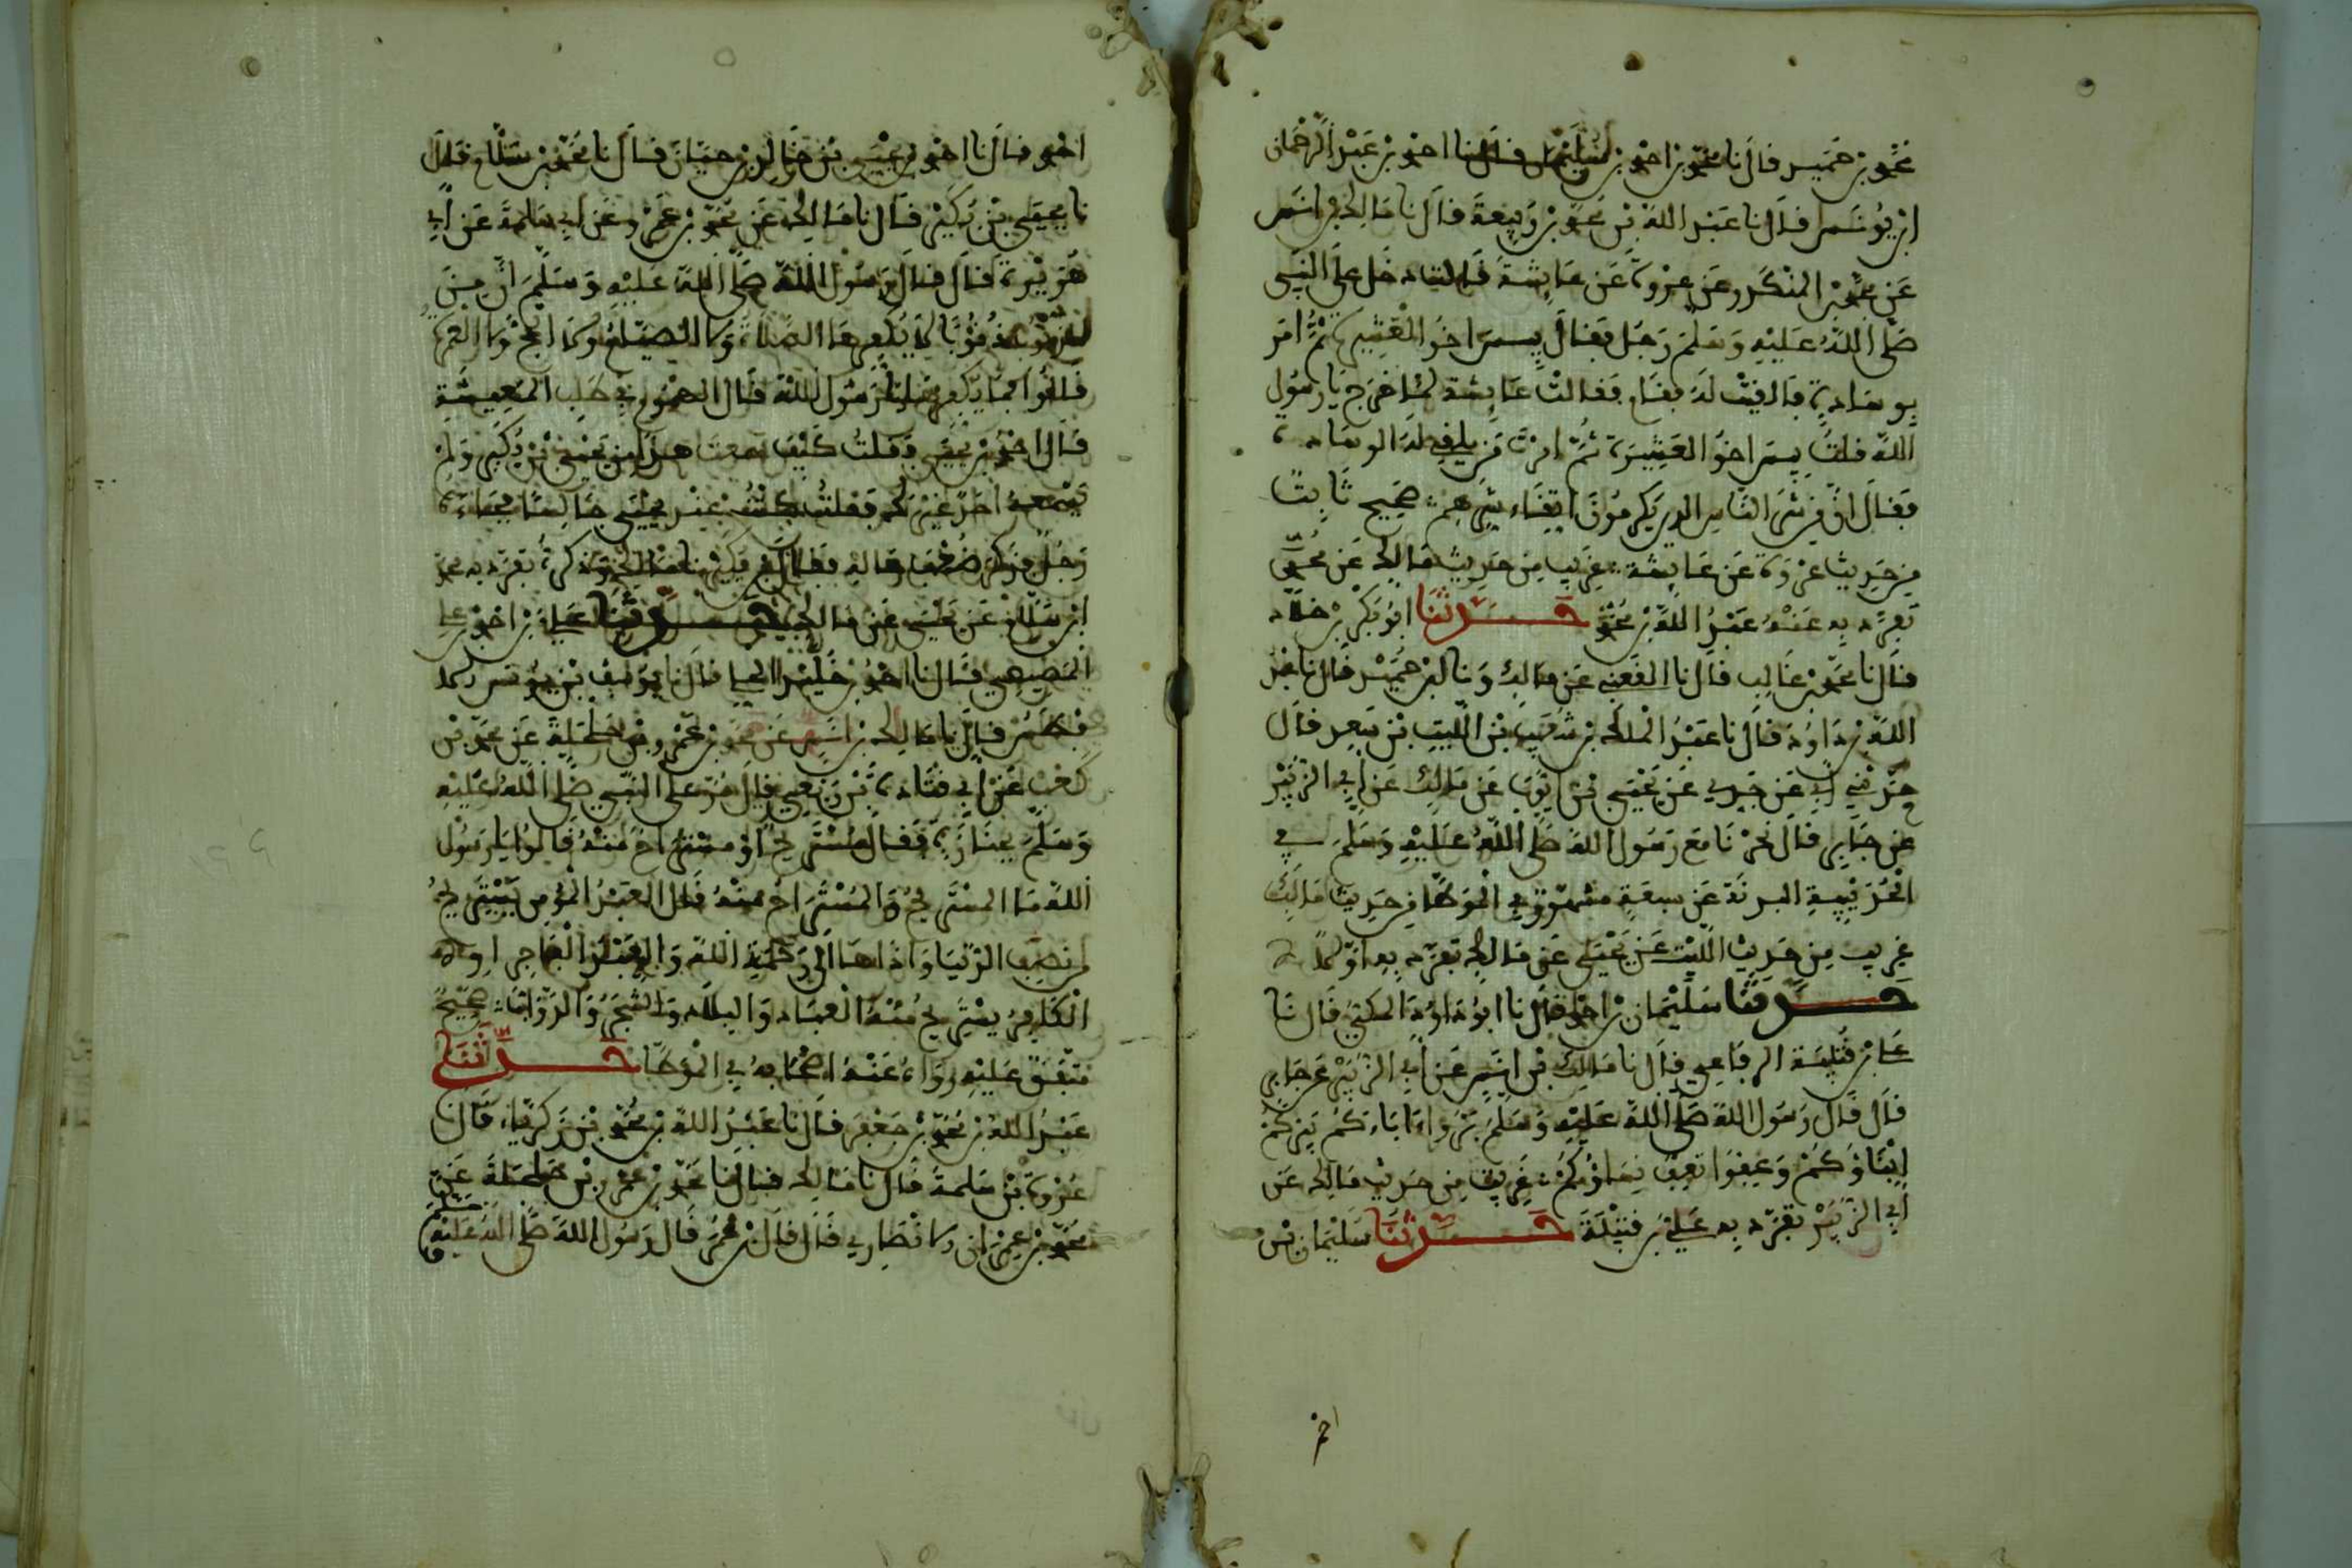 محمد بن حميد قال نا محمد بن احمد بن سليمن قال نا احمد بن عبد الرحمان
ابن يونس قال نا عبد الله بن محمد بن ربيعة قال نا مالك بن انس
عن محمد بن المنكدر وعن عروة عن عايشة قالت دخل على النبي
صلى الله عليه وسلم رجل فقال بيس اخو العشيرة ثم امر
بوسادة فالقيت له فقام فقالت عايشة لما خرج يا رسول
الله قلت بيس اخو العشيرة ثم امرت من يلقي له الوسادة
فقال ان من شر الناس الذين يكرمون اتقاء شرهم صحيح ثابت
من حديث عروة عن عايشة غريب من حديث مالك عن محمد
تفرد به عنه عبد الله بن محمد حدثنا ابو بكر بن خلاد
قال نا محمد بن غالب قال نا القعنبي عن مالك ونا ابن حميد قال نا عبد
الله بن داود قال نا عبد الملك بن شعيب بن الليث بن سعد قال
حدثني ابي عن جدي عن يحيى بن ايوب عن مالك عن ابي الزبير
عن جابر قال نحرنا مع رسول الله صلى الله عليه وسلم في
الحديبية البدنة عن سبعة مشهور في الموطا من حديث مالك
غريب من حديث الليث عن يحيى عن مالك تفرد به
حدثنا سليمان بن احمد قال نا ابو داود المكي قال نا
علي بن قتيبة الرفاعي قال نا مالك بن انس عن ابي الزبير عن جابر
قال قال رسول الله صلى الله عليه وسلم بروا اباءكم يبركم
ابناؤكم وعفوا تعف نساؤكم غريب من حديث مالك عن
ابي الزبير تفرد به علي بن قتيبة حدثنا سليمان بن
احمد
احمد قال نا احمد بن يحيى بن خالد بن حيان قال نا محمد بن سلام قال
نا يحيى بن بكير قال نا مالك عن محمد بن عمرو عن ابي سلمة عن ابي
هريرة قال قال رسول الله صلى الله عليه وسلم ان من
الذنوب ذنوبا لا يكفرها الصلاة ولا الصيام ولا الحج ولا العمرة
قالوا فما يكفرها يا رسول الله قال الهموم في طلب المعيشة
قال احمد بن يحيى فقلت كيف سمعت هذا من يحيى بن بكير ولم
يسمعه احد غيرك فقلت كنت عند يحيى جالسا فجاءه
رجل فذكر ضعف حاله فقال ابن بكير نا مالك وذكره تفرد به محمد
ابن سلام عن يحيى عن مالك حدثنا علي بن احمد بن علي
المصيصي قال نا احمد بن خليد الحلبي قال نا يوسف بن يونس
الافطس قال نا مالك بن انس عن محمد بن عمرو بن حلحلة عن محمد بن
كعب عن ابي قتادة بن ربعي قال مر على النبي صلى الله عليه
وسلم بجنازة فقال مستريح او مستراح منه قالوا يا رسول
الله ما المستريح والمستراح منه قال العبد المؤمن يستريح
من نصب الدنيا واذاها الى رحمة الله والعبد الفاجر او
الكافر يستريح منه العباد والبلاد والشجر والدواب صحيح
متفق عليه رواه عنه اصحابه في الموطا حدثنا
عبد الله بن محمد بن جعفر قال نا عبد الله بن محمد بن زكرياء قال
عروة بن سلمة قال نا مالك قال نا محمد بن عمرو بن حلحلة عن
محمد بن عمران الانصاري قال قال بن عمر قال رسول الله صلى الله عليه وسلم